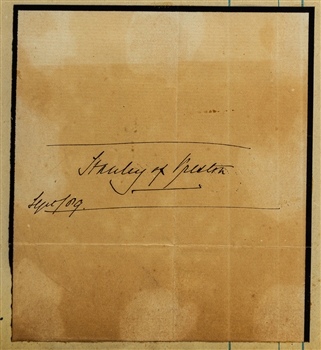 Stanley of Preston
Sept/89.